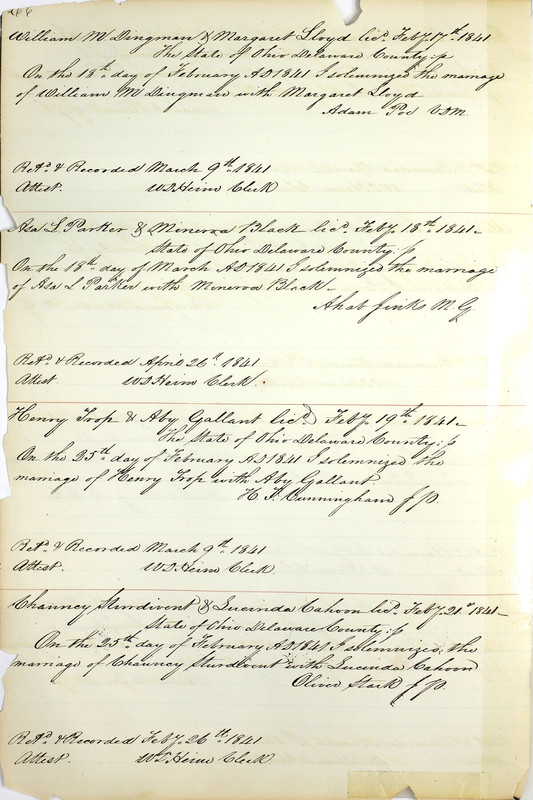 266
William M Dingman & Margaret Lloyd licd. Feby. 17th 1841
The State of Ohio Delaware County: ss
On the 18th day of February AD 1841 I solemnized the marriage
of William M Dingman with Margaret Lloyd
Adam Poe VDM
Retd. & Recorded March 9th 1841
Attest. W.D. Heim Clerk
Asa L. Parker & Minerva Black licd. Feby. 18th 1841-
State of Ohio Delaware County: ss
On the 18th day of March AD 1841 I solemnized the marriage
of Asa L Parker with Minerva Black-
Ahab Jinks M.G.
Retd. & Recorded April 26th 1841
Attest. W.D. Heim Clerk.
Henry Trop & Aby Gallant licd. Feby. 19th 1841-
The State of Ohio Delaware County: ss
On the 25th day of February AD 1841 I solemnized the
marriage of Henry Trop with Aby Gallant.
H. F. Cunningham J.P.
Retd. & Recorded March 9th 1841
Attest. W.D. Heim Clerk
Chauncy Sturdivent & Lucinda Cahoon licd. Feby. 21st 1841-
State of Ohio Delaware County: ss
On the 25th day of February AD 1841 I solemnized the
marriage of Chauncy Sturdivent with Lucinda Cahoon
Oliver Stark J.P.
Retd. & Recorded Feby. 26th 1841
Attest. W.D. Heim Clerk